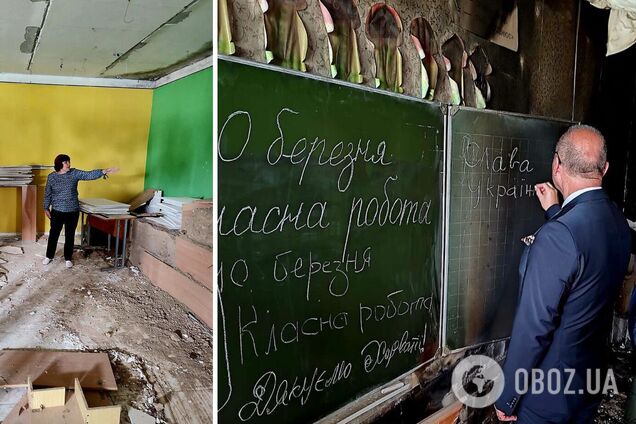 0 березня
ласна робота
10 березня
Класна робота
Дякуємо Хорватії!
Слава
Україн
OBOZ.UA